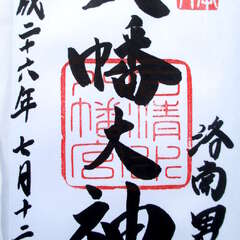 洛南男
幡大神
石清水
八幡宮
成二十六年七月十二